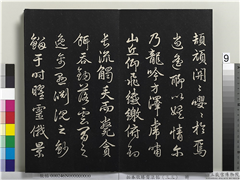 頡頏關〻嚶〻於焉
逍遙聊以娛情爾
乃龍吟方澤虎嘯
山丘仰飛纖繳俯釣
長流觸矢而斃貪
餌吞鉤落雲間之
逸禽懸淵沉之魦
鰡于時曜靈俄景